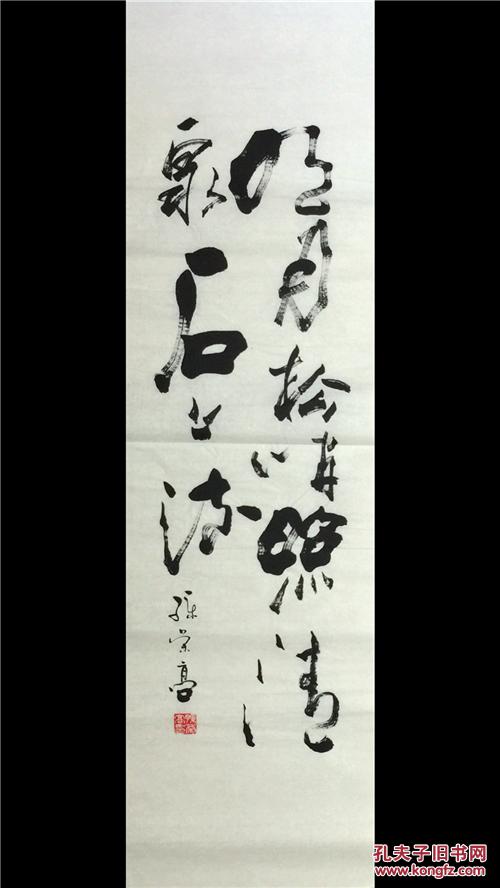 明月松間照清
泉石上流
孫荣高
孔夫子旧书网
www.kongfz.com